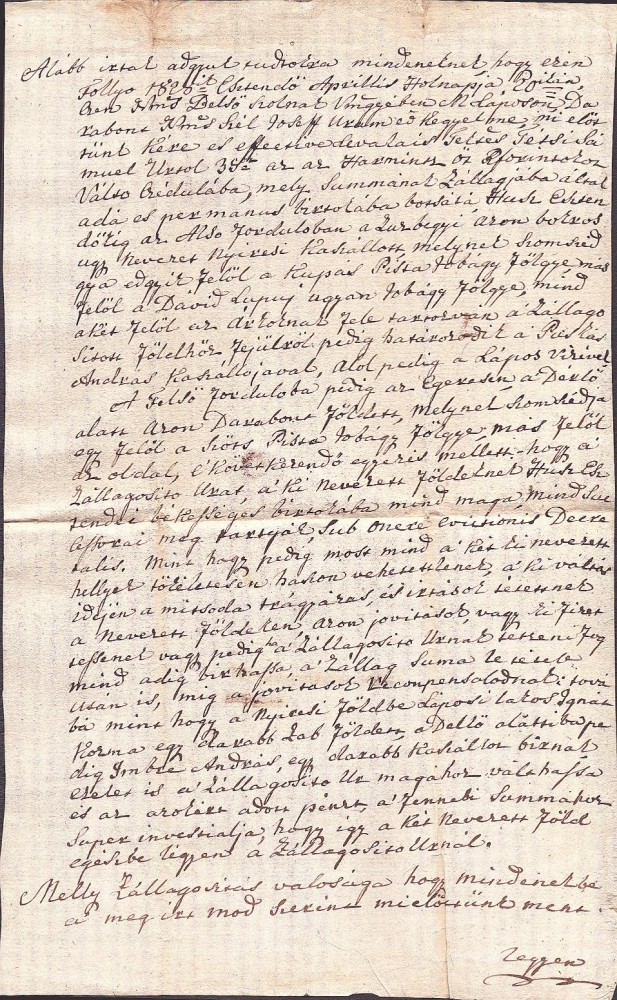 Alább irtak adgyuk tudtára mindeneknek hogy ezen
follyo 1828ik Esztendő Aprillis Holnapja
Ezen Nms Belső Szolnok Vmgyében M Laposon, Da
rabont Nms Szél Josef Uram eő kegyelme, mi előt
tünk kére es effective devalvais Tettes Tétsi Sá
muel Urtol 35 az az Harmintz öt Rforintokot
Válto Czédulába, mely Summának Zállagjába által
adá es per manus birtokába botsátá Husz Eszten
dőkig az Also fordulóban a Aron bokros
ugy nevezet Nyiresi Kaszállott, melynek szomszed
gya edgyik felöl a Kupas Pista Jobágy földgye mas
felöl a Dávid Lupuj ugyan Jobágy földgye, mind
a két felöl az Árkoknak fele tartozván a Zállago
sitott földhöz fejülröl pedig határozodik a
András Kaszállojával, alol pedig a Lápos Vizivel
A Felsö forduloba pedig az Egeresen a Déllö
alatt Aron Darabont földett, melynek szomszedja
egy felöl a Szőts Pista Jobágy földgye, mas felöl
az oldal, e' következendő egyezés mellett: hogy á
Zállagosito Urat, á ki nevezett földeknek Husz Esz
tendei bekességes birtokába mind maga, mind Suc
cessorai meg tartják, Sub onere evictionis Decre
talis. Mint hogy pedig most mind a' két ki nevezett
hellyek tökéletesen haszon vehetetlenek, a' ki váltás
idején a mitsoda trágyázás, és irtások tétettnek
a nevezett földeken, azon jovitások, vagy ki fizet
tessenek vagy pedig á Zállagosito Urnak tettzeni fog
mind adig birhassa, a' Zállag Suma le tétele
után is, mig a jovitások recompensálodnak: tová
bá mint hogy a Nyiresi földbe Láposi lakos Ignát
Kozma egy darabb Zab földett, a Dellö alattiba pe
dig Imbré András, egy darabb Kaszállot birnak
ezeket is a' Zállagosito Ur magához válthassa
és az azokért adott pénzt, a' fennebi Summához
Super investiálja, hogy igy a két nevezett föld
egészbe légyen a Zállagosito Urnál.
Melly Zállagositás valosága hogy mindenekbe
a' meg irt mod szerint mi előttünk ment
légyen